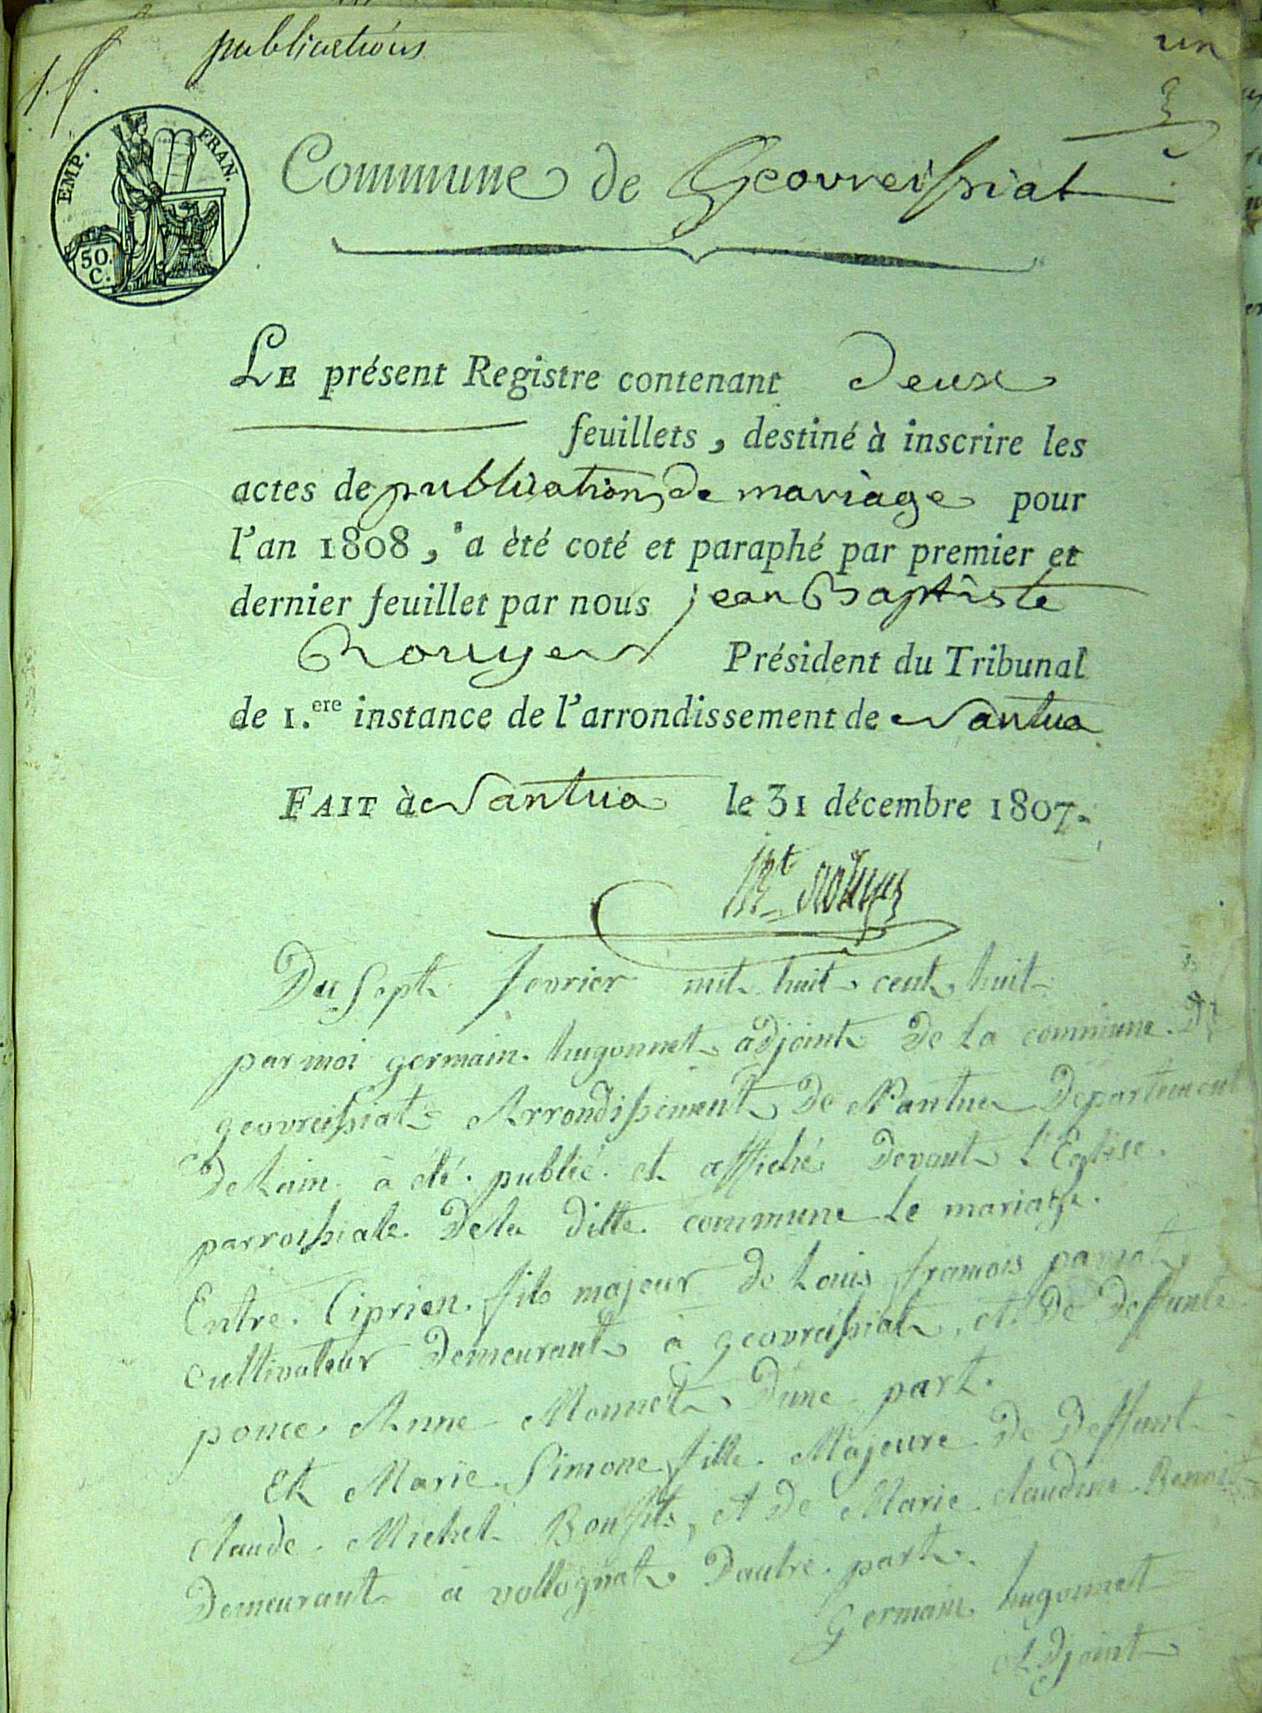 1. f.
publications
un
EMP. FRAN.
50.
C.
Commune de Geovreissiat
LE présent Registre contenant Deux
feuillets, destiné à inscrire les
actes de publication de mariage pour
l'an 1808, a été coté et paraphé par premier et
dernier feuillet par nous jean Baptiste
Rouyer Président du Tribunal
de 1.ere instance de l'arrondissement de Nantua
FAIT à Nantua le 31 décembre 1807.
Du Sept fevrier mil huit cent huit
par moi germain hugonnet adjoint De la commune De
geovreissiat Arrondissement De Nantua Departement
De Lain à été publié et affiché Devant L'Eglise
parroissiale Dela ditte commune Le mariage
Entre Ciprien fils majeur de Louis françois
cultivateur Demeurant à geovreissiat et De Deffunte
ponce Anne Monnet Dune part.
Et Marie Simone fille Majeure De Deffunt
claude Michel et De Marie claudine Benoit
Demeurant à vollognat Dautre part.
Germain hugonnet
Adjoint